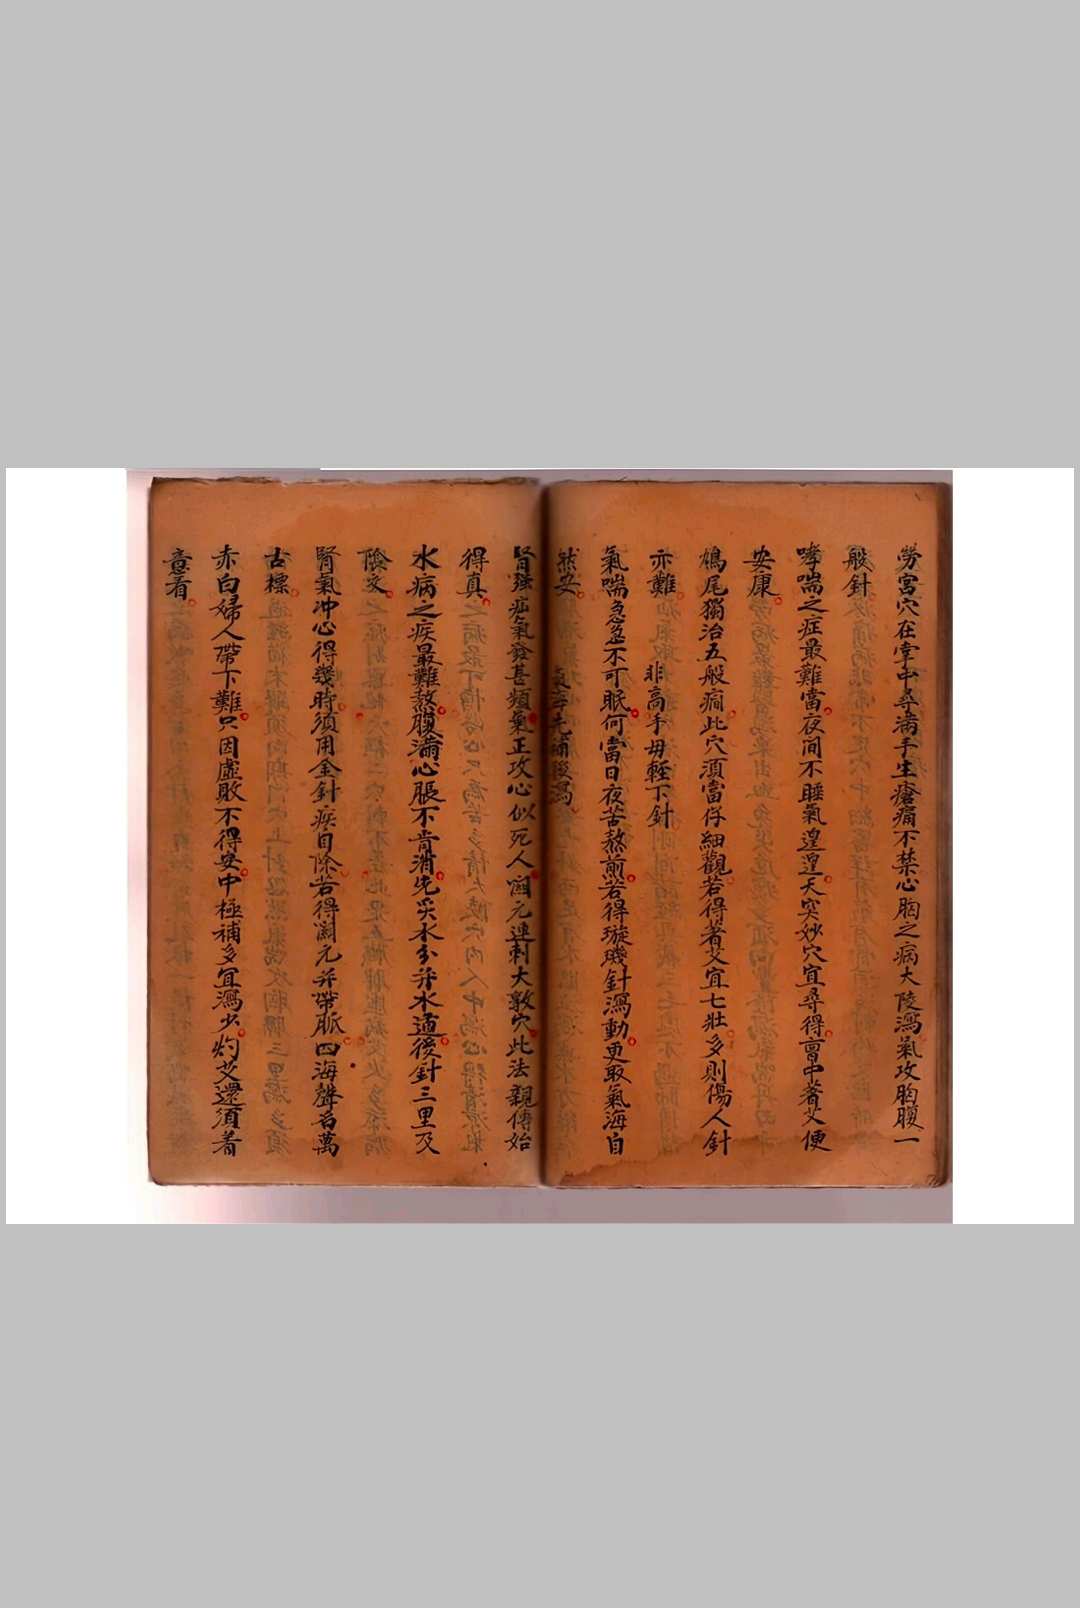 勞宮穴在掌中尋滿手生瘡痛不禁心胸之病大陵瀉氣攻胸腹一
般針
哮喘之症最難當夜間不睡氣遑遑天突妙穴宜尋得膻中著艾便
安康
鳩尾獨治五般癇此穴須當仔細觀若得著艾宜七壯多則傷人針
亦難 非高手毋輕下針
氣喘急急不可眠何當日夜苦熬煎若得璇璣針瀉動更取氣海自
然安 先補後瀉
腎強疝氣發甚頻氣正攻心似死人關元連刺大敦穴此法親傳始
得真
水病之疾最難熬腹滿心脹不肯消先灸水分并水道後針三里及
陰交
腎氣冲心得幾時須用金針疾自除若得關元并帶脈四海聲名萬
古標
赤白婦人帶下難只因虛敗不得安中極補多宜瀉少灼艾還須着
意看